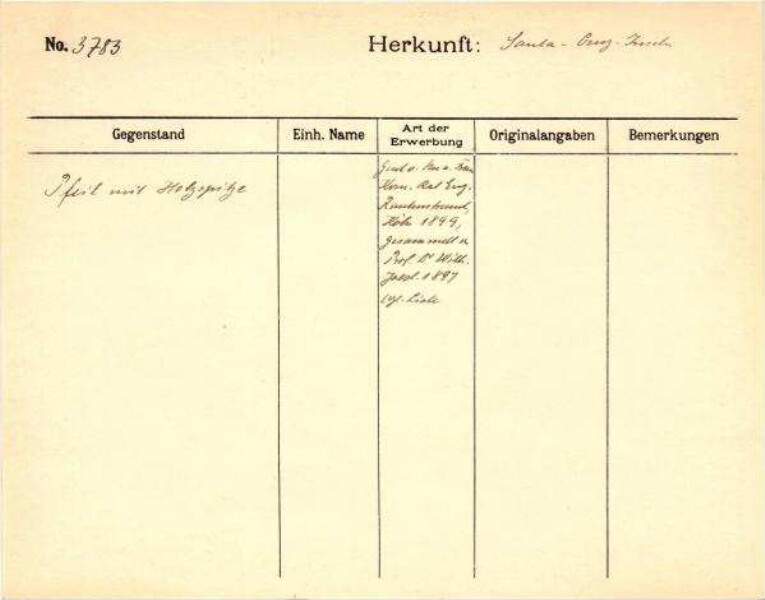 No. 3783
Herkunft: Santa-Cruz-Inseln
Gegenstand
Einh. Name
Art der
Erwerbung
Originalangaben
Bemerkungen
Pfeil mit Holzspitze
Gesch. v. Frau
Kom. Rat Eug.
Rautenstrauch,
Köln 1899,
gesammelt v.
Prof. Dr Wilh.
Joest 1897
vgl. Liste